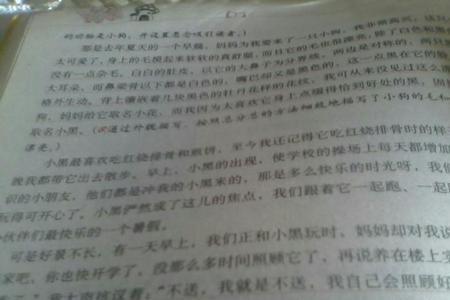 的动物是小狗，并设置悬念吸引读者。）
那是去年夏天的一个早晨，妈妈为我要来了一只小狗，我非常高兴
太可爱了，身上的毛摸起来软软的真舒服，而且它的毛也很漂亮，除了白色和黑
没有一点杂毛。白白的肚皮，以它的大鼻子为分界线，两边是对称的
大耳朵，而鼻梁骨以下都是白色的，嘴巴却又是黑色的
格外生动。背上镶嵌着几块黑色的牡丹花样的花纹，我可从来没见过这么
狗，妈妈给它取名小花，而我因为太喜欢它身上点缀得恰到好处的黑
取名小黑。（通过外貌描写，按照总分总的方法细致地描写了小狗的毛
漂亮。）
小黑最喜欢吃红烧排骨和煎饼，至今我还记得它吃红烧排骨时的样
晚我都带它出去散步。早上，小黑的出现，使学校的操场上每天都增加
识的小朋友，他们都是冲我的小黑来的，那是多么快乐的时光呀，我们
玩得可开心了。小黑俨然成了这儿的焦点，我们跟着它一起跑、一起
小伙伴们最快乐的一个暑假。
可是好景不长，有一天早上，我们正和小黑玩时，妈妈却对我说
家吧，你也快开学了，没那么多时间照顾它了，再说养在楼上
我大声抗议着：“不送，我就是不送，我自己会照顾好